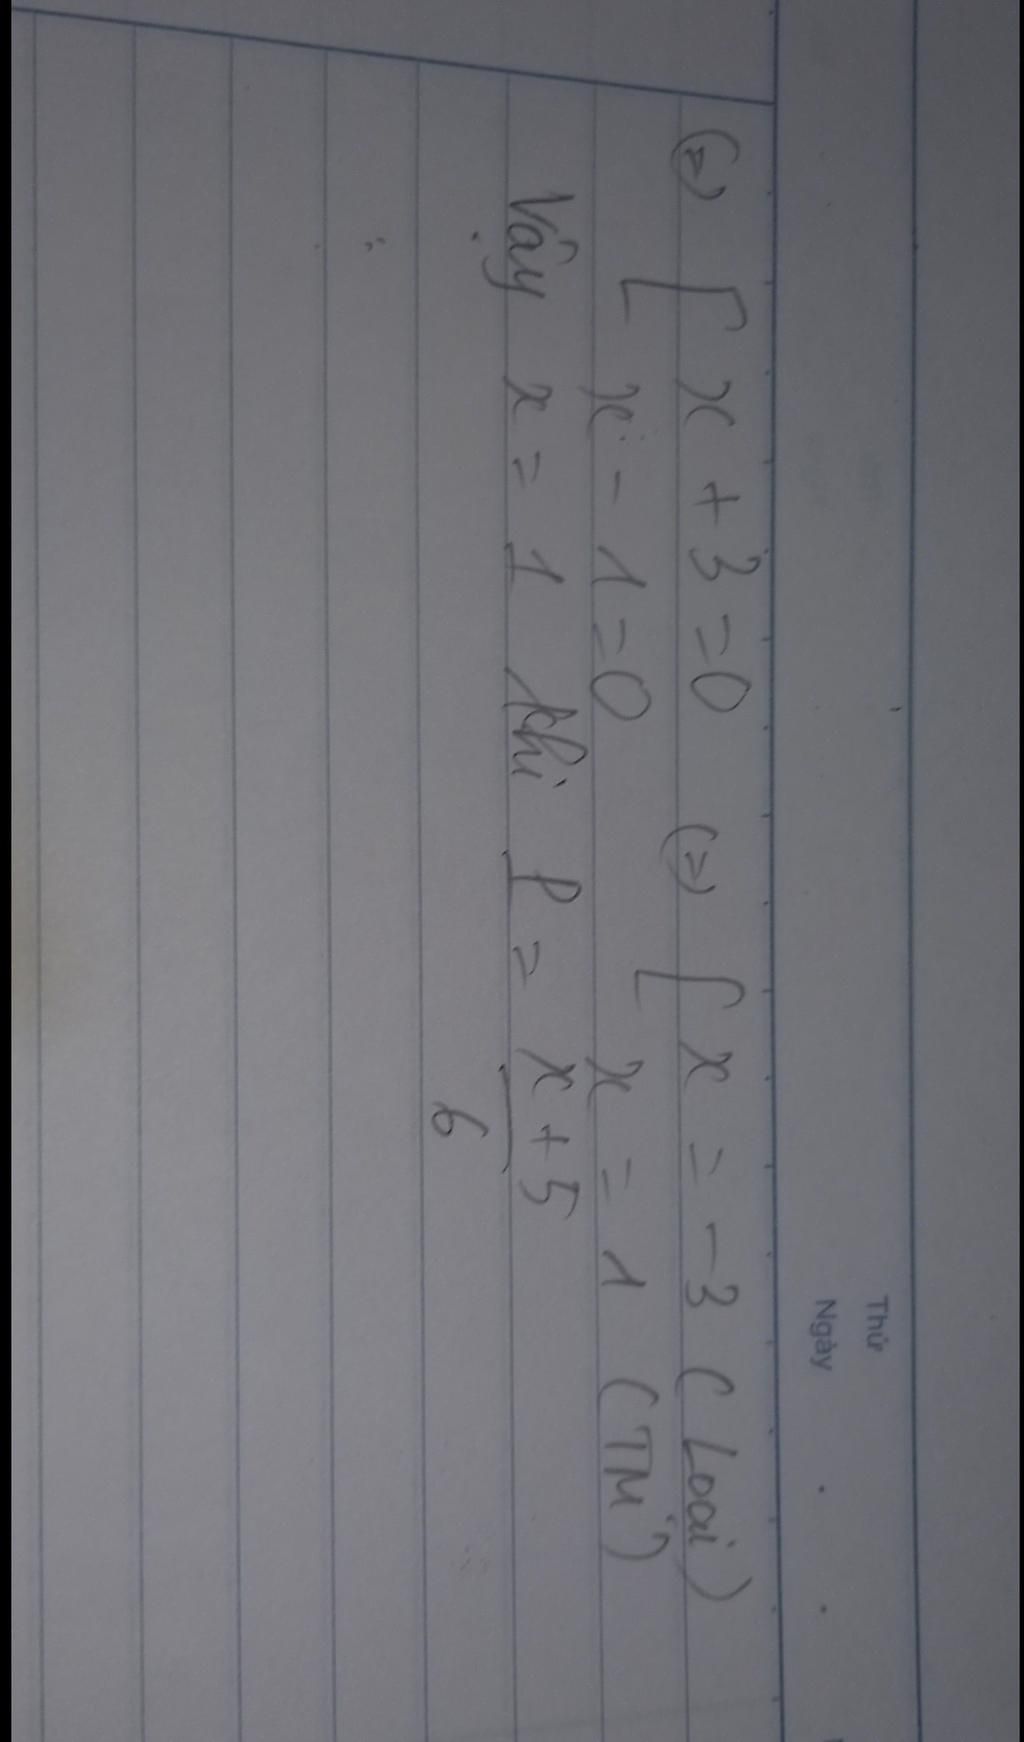 Thứ
Ngày
(=) [ x + 3 = 0 (=) [ x = -3 (Loại)
x - 1 = 0 x = 1 (TM)
Vậy x = 1 khi P = x + 5
6